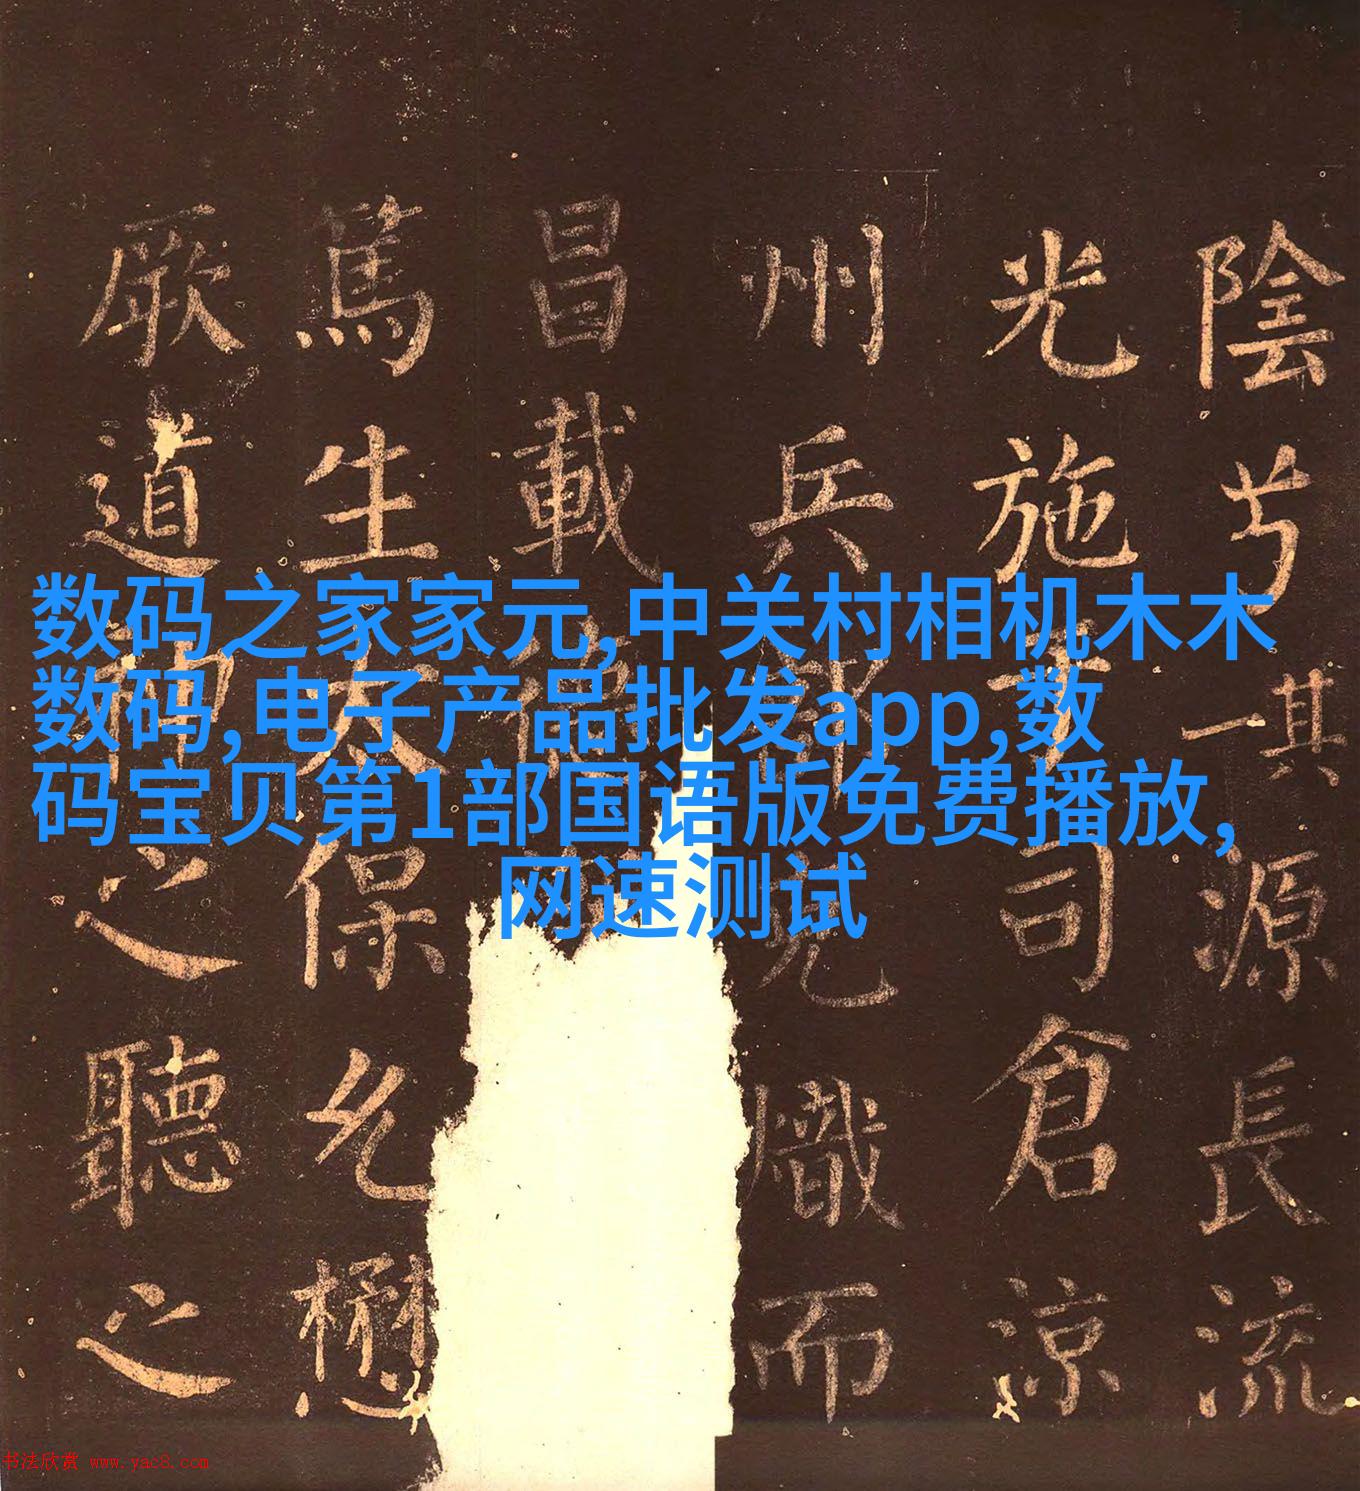 数码之家家元,中关村相机木木
数码,电子产品批发app,数
码宝贝第1部国语版免费播放,
网速测试
陰兮其一源長流
光施于司倉涼
州兵部克熾而
昌載德
篤生太保允懋
厥道神之聽之
书法欣赏 www.yac8.com